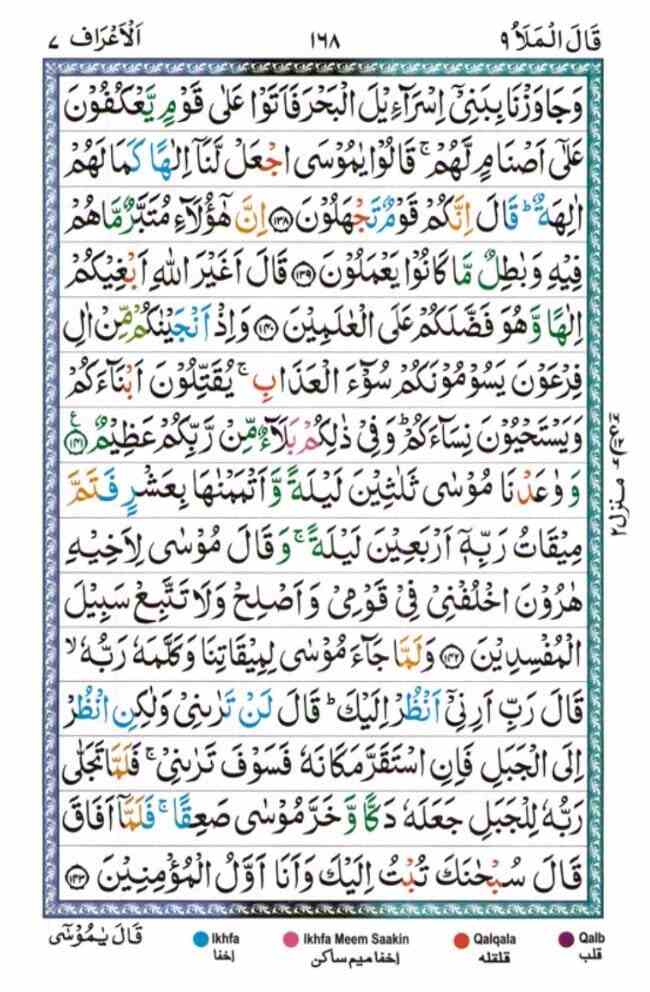 قَالَ الْمَلَاُ ٩ ١٦٨ اَلْاَعْرَاف ٧
وَجَاوَزْنَا بِبَنِیْۤ اِسْرَآءِیْلَ الْبَحْرَ فَاَتَوْا عَلٰی قَوْمٍ یَّعْكُفُوْنَ
عَلٰۤی اَصْنَامٍ لَّهُمْ ۚ قَالُوْا یٰمُوْسَی اجْعَلْ لَّنَاۤ اِلٰهًا كَمَا لَهُمْ
اٰلِهَةٌ ؕ قَالَ اِنَّكُمْ قَوْمٌ تَجْهَلُوْنَ ﴿۱۳۸﴾ اِنَّ هٰۤؤُلَآءِ مُتَبَّرٌ مَّا هُمْ
فِیْهِ وَبٰطِلٌ مَّا كَانُوْا یَعْمَلُوْنَ ﴿۱۳۹﴾ قَالَ اَغَیْرَ اللّٰهِ اَبْغِیْكُمْ
اِلٰهًا وَّهُوَ فَضَّلَكُمْ عَلَی الْعٰلَمِیْنَ ﴿۱۴۰﴾ وَاِذْ اَنْجَیْنٰكُمْ مِّنْ اٰلِ
فِرْعَوْنَ یَسُوْمُوْنَكُمْ سُوْٓءَ الْعَذَابِ ۚ یُقَتِّلُوْنَ اَبْنَآءَكُمْ
وَیَسْتَحْیُوْنَ نِسَآءَكُمْ ؕ وَفِیْ ذٰلِكُمْ بَلَآءٌ مِّنْ رَّبِّكُمْ عَظِیْمٌ ﴿۱۴۱﴾ ع
وَوٰعَدْنَا مُوْسٰی ثَلٰثِیْنَ لَیْلَةً وَّاَتْمَمْنٰهَا بِعَشْرٍ فَتَمَّ
مِیْقَاتُ رَبِّهٖۤ اَرْبَعِیْنَ لَیْلَةً ۚ وَقَالَ مُوْسٰی لِاَخِیْهِ
هٰرُوْنَ اخْلُفْنِیْ فِیْ قَوْمِیْ وَاَصْلِحْ وَلَا تَتَّبِعْ سَبِیْلَ
الْمُفْسِدِیْنَ ﴿۱۴۲﴾ وَلَمَّا جَآءَ مُوْسٰی لِمِیْقَاتِنَا وَكَلَّمَهٗ رَبُّهٗ ۙ
قَالَ رَبِّ اَرِنِیْۤ اَنْظُرْ اِلَیْكَ ؕ قَالَ لَنْ تَرٰىنِیْ وَلٰكِنِ انْظُرْ
اِلَی الْجَبَلِ فَاِنِ اسْتَقَرَّ مَكَانَهٗ فَسَوْفَ تَرٰىنِیْ ۚ فَلَمَّا تَجَلّٰی
رَبُّهٗ لِلْجَبَلِ جَعَلَهٗ دَكًّا وَّخَرَّ مُوْسٰی صَعِقًا ۚ فَلَمَّاۤ اَفَاقَ
قَالَ سُبْحٰنَكَ تُبْتُ اِلَیْكَ وَاَنَا اَوَّلُ الْمُؤْمِنِیْنَ ﴿۱۴۳﴾
منزل ٢
قَالَ یٰمُوْسٰۤی
Ikhfa Ikhfa Meem Saakin Qalqala Qalb
اِخفا اِخفا میم ساکن قلقله قلب